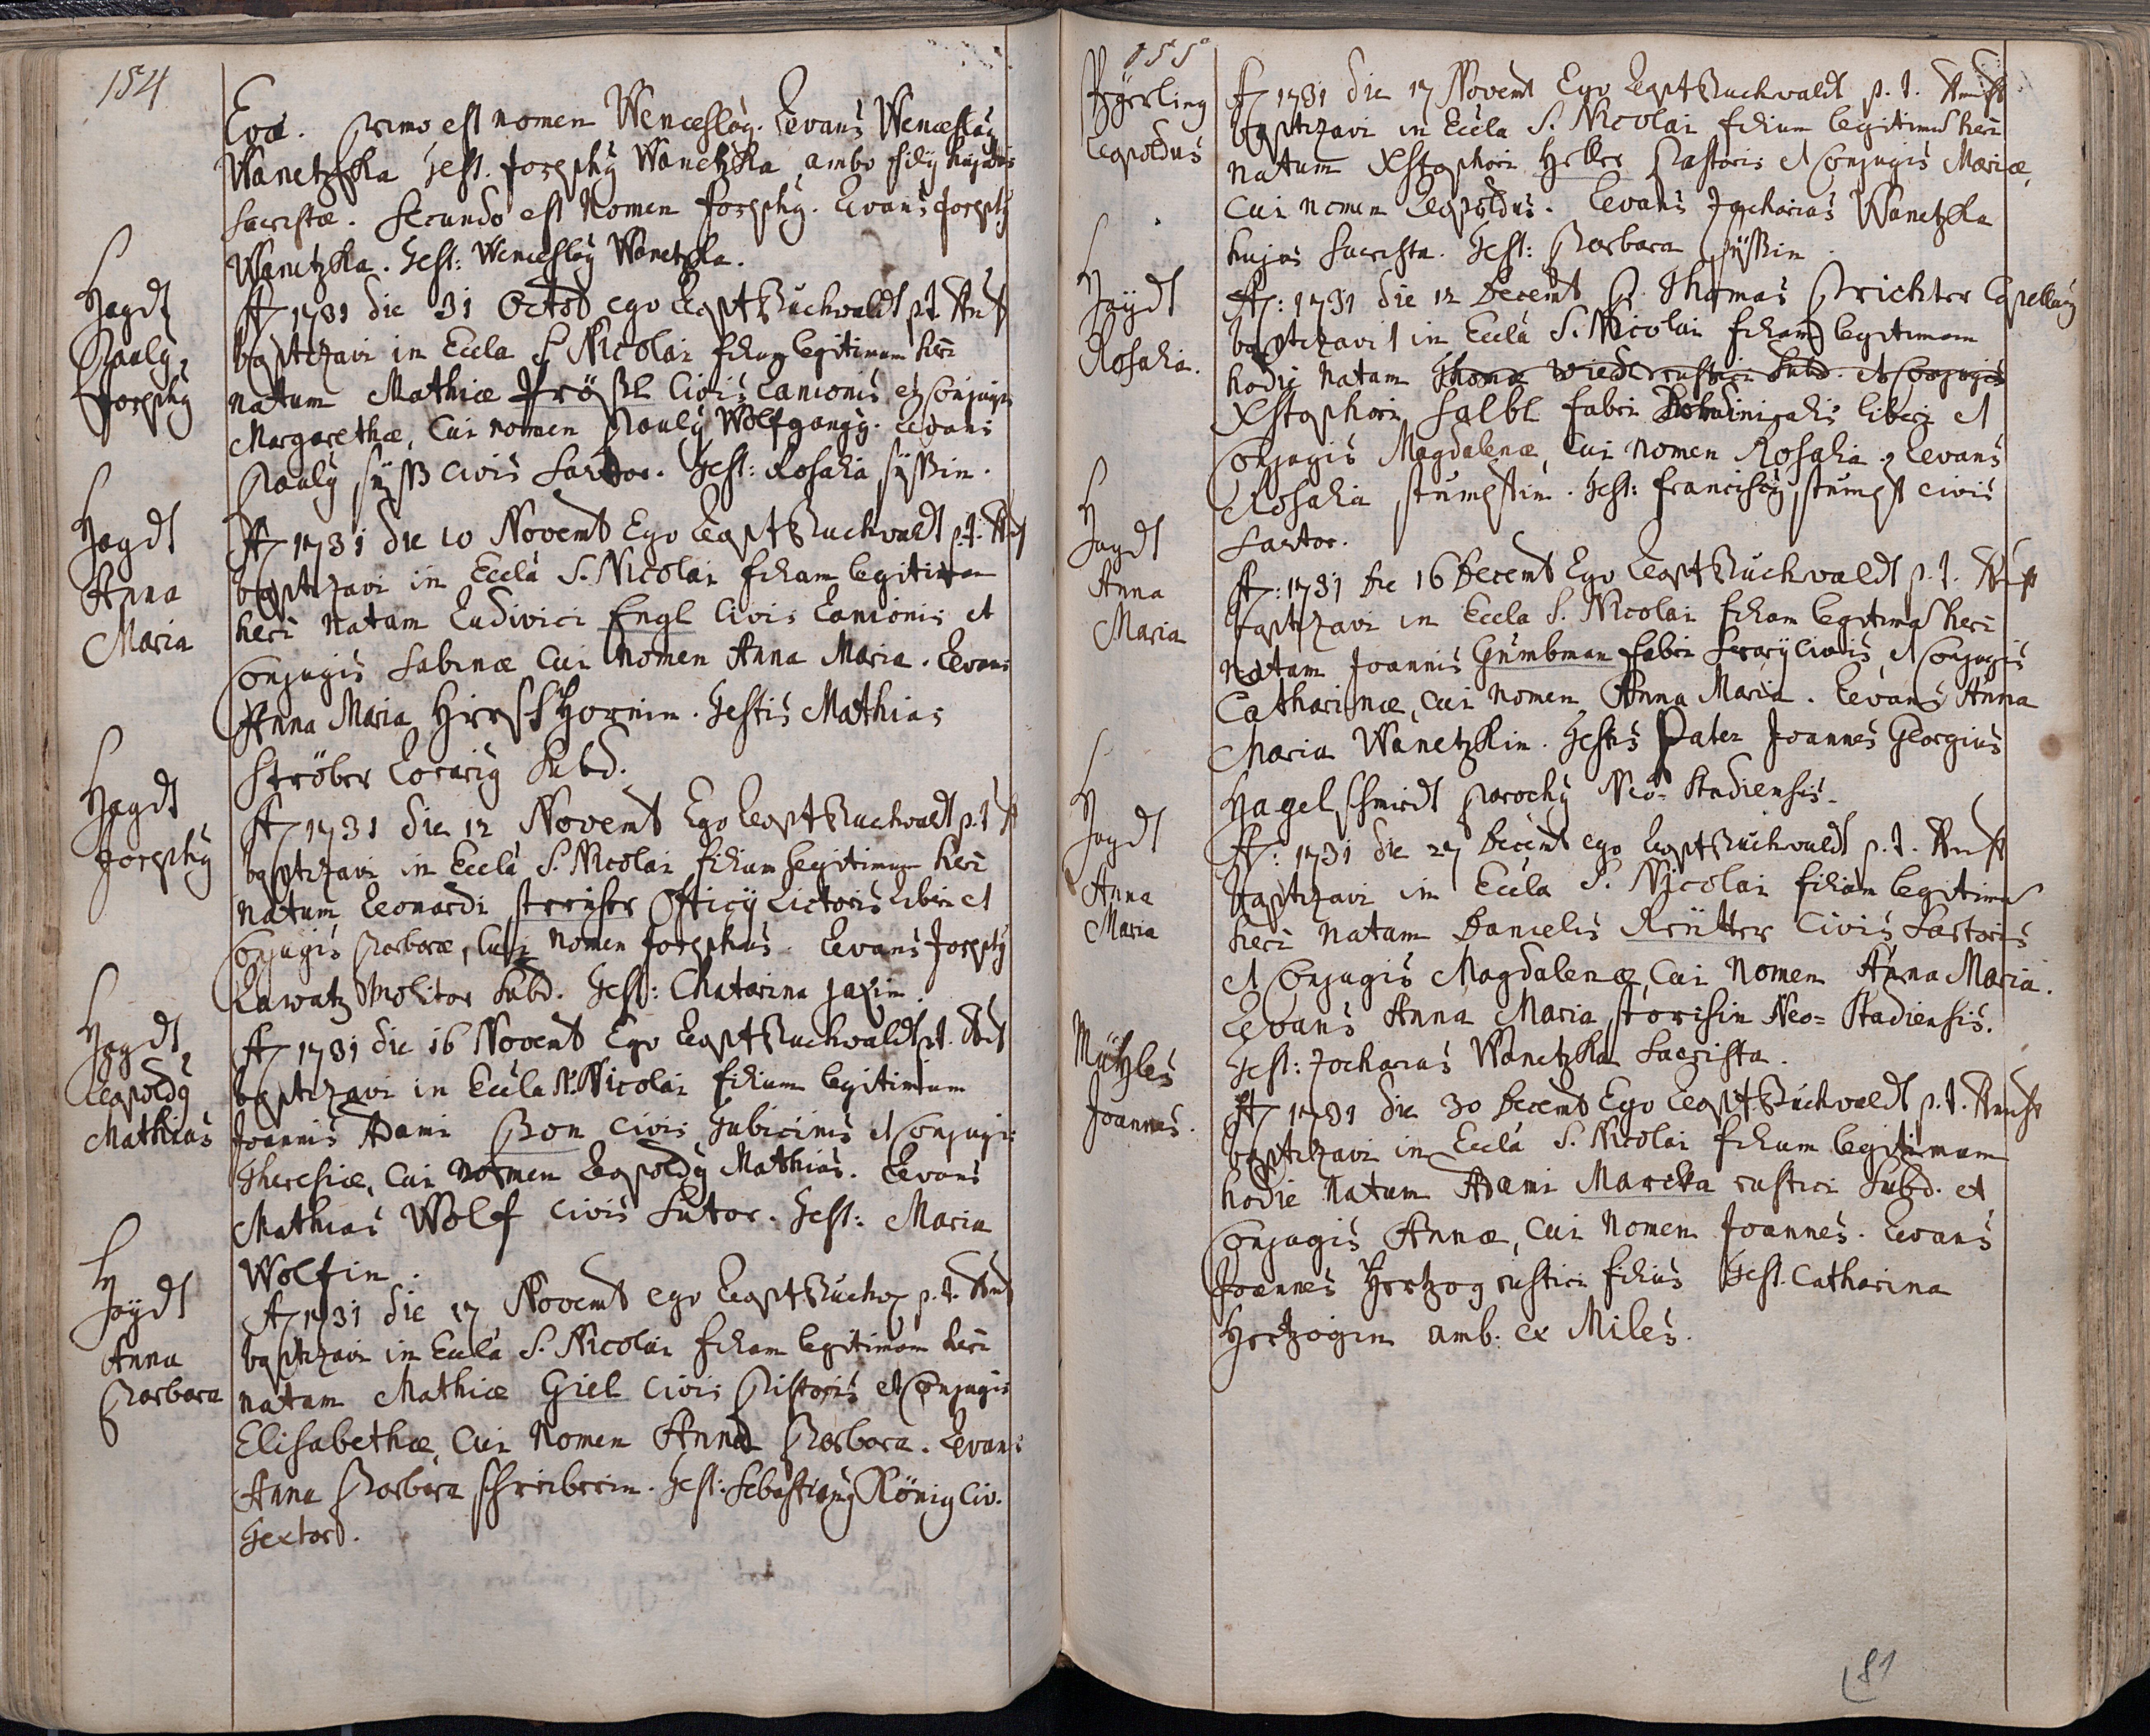 154
Evæ. Primo est nomen Wenceslaÿ. Levans Wenceslaÿ
Wanetzka Test. Josephÿ Wanetzka, ambo filÿ hujatis
Sacristæ. Secundo est Nomen Josephÿ. Levans Josephÿ
Wanetzka. Test: Wenceslaÿ Wanetzka.
Haÿdt
Paulÿ,
Josephÿ
A 1731 die 31 Octob ego Leop Buchwaldt p.t.
baptizavi in Eccla S Nicolai filium legitimum heri
natum Mathiæ Prößl Civis Lanionis et Conjugis
Margarethæ, Cui nomen Paulÿ Wolfgangÿ. Levans
Paulÿ süss civis Sartor. Test: Rosalia süssin.
Haÿdt
Anna
Maria
A 1731 die 10 Novemb Ego Leop Buchwaldt p.t.
baptizavi in Eccla S. Nicolai filiam legitimam
heri natam Ludivici Engl Civis Lanionis et
Conjugis Sabinæ Cui Nomen Anna Maria. Levans
Anna Maria Hirschhornin. Testis Mathias
Ströber Corariÿ Subd.
Haÿdt
Josephÿ
A 1731 die 12 Novemb Ego Leop Buchwaldt p.t
baptizavi in Eccla S. Nicolai filium legitimum heri
natum Leonardi Officÿ Lictoris Liberi et
Conjugis Barbaræ, Cui Nomen Josephus. Levans Josephÿ
Lawatz Molitor Subd. Test: Chatarina
Haÿdt
Leopoldÿ
Mathias
A 1731 die 16 Novemb Ego Leop Buchwaldt p.t.
baptizavi in Eccla S. Nicolai filium legitimum
Joannis Adami Bon civis Tubicinis et Conjugis
Theresiæ, Cui Nomen Leopoldÿ Mathias. Levans
Mathias Wolf civis Sutor. Test: Maria
Wolfin.
Haÿdt
Anna
Barbara
A 1731 die 17 Novemb ego Leop Buchw p.t.
baptizavi in Eccla S. Nicolai filiam legitimam heri
natam Mathiæ Giel civis Pistoris et Conjugis
Elisabethæ Cui Nomen Anna Barbara. Levans
Anna Barbara schreiberin. Test: Sebastianÿ König Civ.
Textor.
155
Leopoldus
A 1731 die 17 Novemb Ego Leop Buchwaldt p.t.
baptizavi in Eccla S. Nicolai filium legitimum heri
natum Xstophori Heller Pastoris et Conjugis Mariæ,
Cui nomen Leopoldus. Levans Zacharias Wanetzka
hujus Sacrista. Test: Barbara süssin.
Haÿdt
Rosalia.
A: 1731 die 12 Decemb P. Thomas Prichter Capellanÿ
baptizavit in Eccla S. Nicolai filiam legitimam
hodie natam Thomæ rustici Subd. et Conjugis
Xstophori Salbl fabri Dominicalis liberi et
Conjugis Magdalenæ, Cui nomen Rosalia. Levans
Rosalia stumpfin. Test: Franciscÿ stumpf civis
Sartor.
Haÿdt
Anna
Maria
A: 1731 die 16 Decemb Ego Leop Buchwaldt p.t.
baptizavi in Eccla S. Nicolai filiam legitimam heri
natam Joannis Gumbman fabri Serarÿ civis et Conjugis
Catharinæ, cui nomen Anna Maria. Levans Anna
Maria Wanetzkin. Testis Pater Joannes Georgius
Hagelschmidt Parochÿ Neo=Stadiensis.
Haÿdt
Anna
Maria
A: 1731 die 27 Decemb ego Leop Buchwaldt p.t.
baptizavi in Eccla S. Nicolai filiam legitimam
heri natam Danielis Reütter Civis Sartoris
et Conjugis Magdalenæ, Cui Nomen Anna Maria.
Levans Anna Maria Neo=Stadiensis.
Test: Zacharias Wanetzka Sacrista.
Mützles
Joannes.
A 1731 die 30 Decemb Ego Leop Buchwaldt p.t.
baptizavi in Eccla S. Nicolai filium legitimum
hodie natum Adami Mareka rustici Subd. et
Conjugis Annæ, Cui Nomen Joannes. Levans
Joannes Hertzog rustici filius Test. Catharina
Hertzogin amb. ex Miles.
81